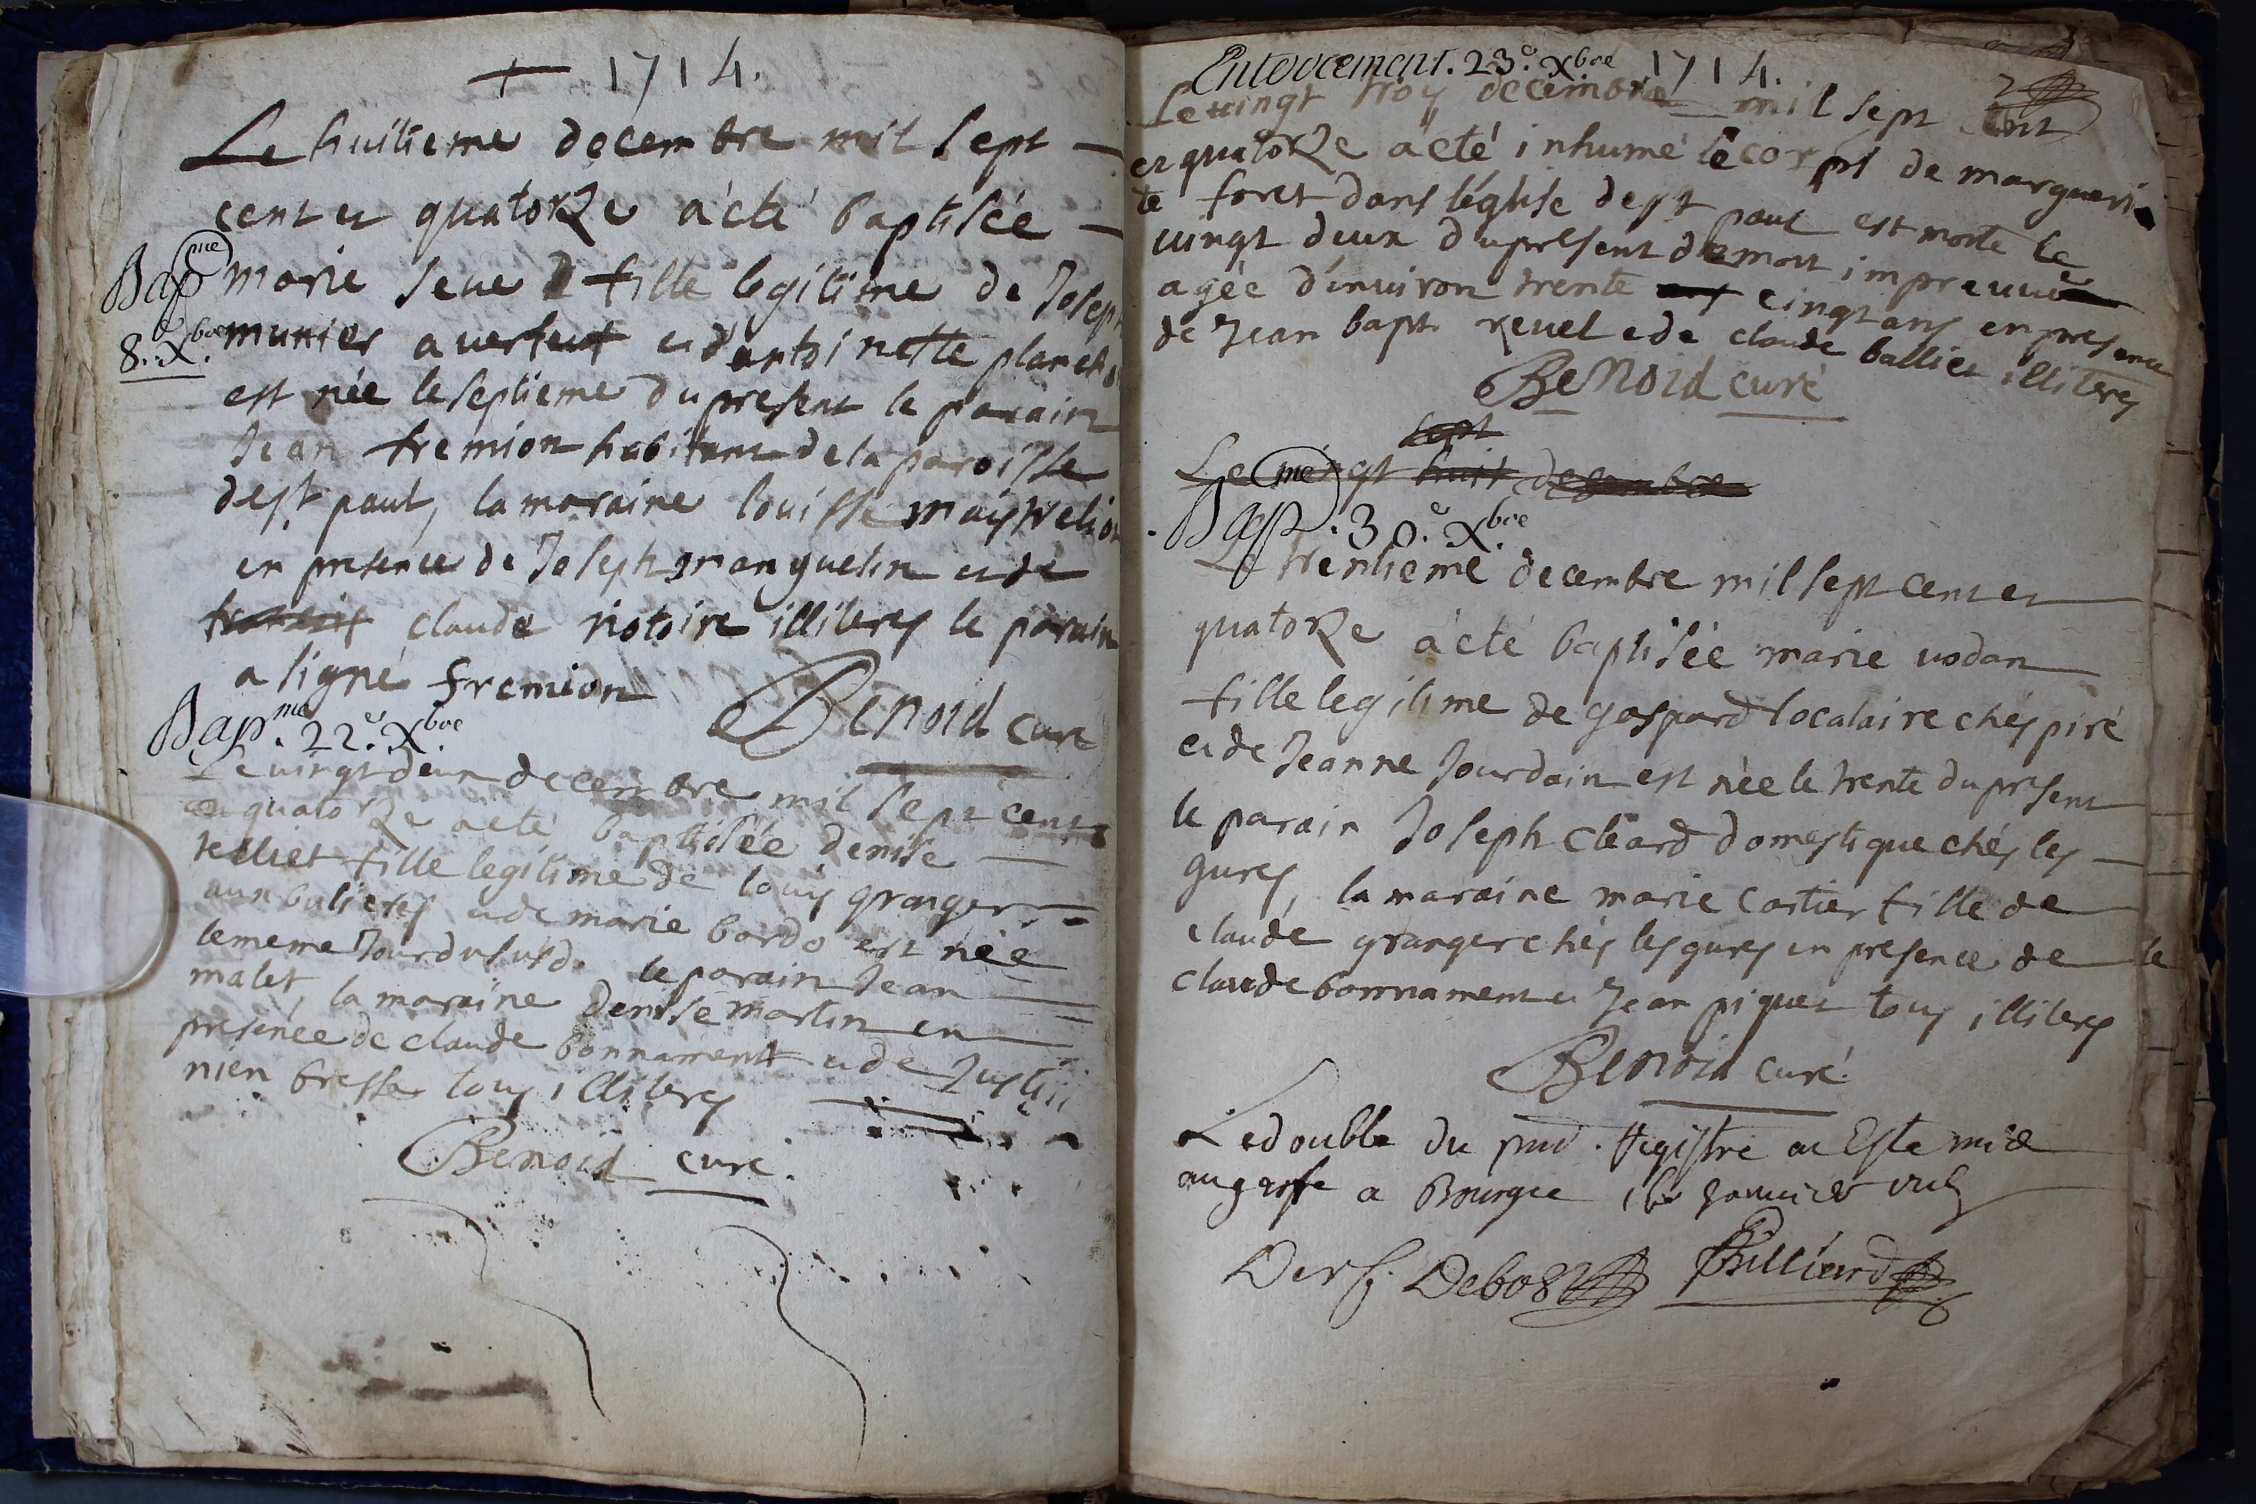 + 1714.
Le huitieme decembre mil sept
cent et quatorze a eté baptisée
Bap me marie seve fille legitime de Joseph
8.e Xbre munier a et d'antoinette planch
est née le septieme du present le parain
Jean fremion habitant de la paroisse
de st paul, la maraine Louisse
en presence de Joseph manguelin et de
claude notoire illiteres le parain
a signé fremion
Benoid curé
Bap.me 22.e Xbre
Le vingt deux decembre mil sept cent
et quatorze a eté baptisée denise
telliet fille legitime de louis granger
aux bulieres et de marie bordo est née
le meme Jour du susd. le parain Jean
malet, la maraine denise martin en
presence de claude bonnament et de Justi
nien bresse tous illiteres
Benoid curé.
Enterrement. 23.e Xbre 1714. 2
Le vingt troy decembre mil sept cent
et quatorze a eté inhumé le corps de margueri
te foret dans l'église de st paul est morte le
vingt deux du present de mort impreuvüe
agée d'environ trente cinqt ans en presence
de Jean bapt. revel e de claude balliet illiteres
Benoid curé
sept
Le vingt huit decembre
Bap me. 30.e Xbre
Le trentieme decembre mil sept cent et
quatorze a eté baptisée marie vodan
fille legitime de gaspard locataire chés piré
et de Jeanne Jourdain est née le trente du present
le parain Joseph cléard domestique chés les
gures, la maraine marie cartier fille de
claude granger chés les gures en presence de
claude bonnament et Jean piquet tous illiteres
Benoid curé
Le double du pnt. Registre a esté mis
au greffe a Bourgce janvier
Debost Billiard